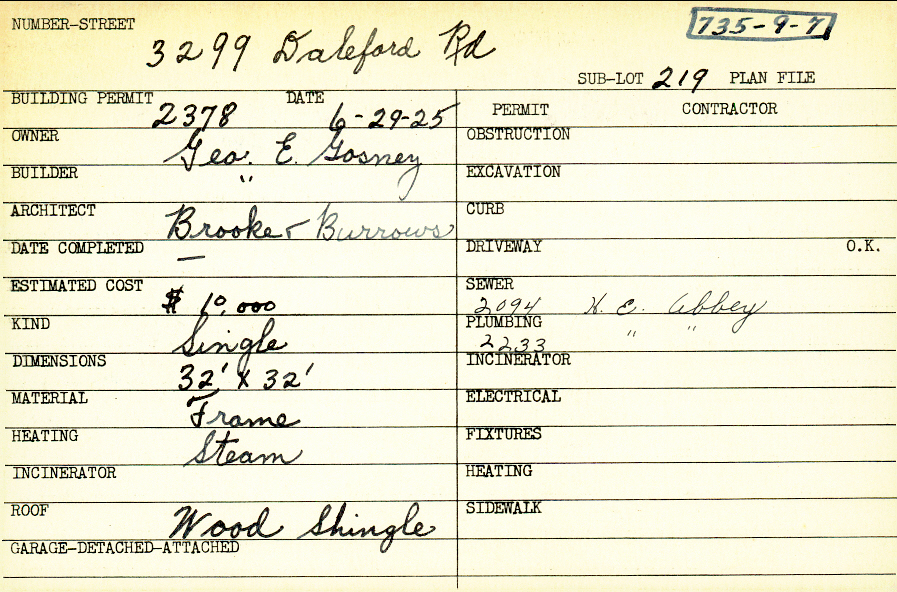 NUMBER-STREET 3299 Daleford Rd 735-9-7
SUB-LOT 219 PLAN FILE
BUILDING PERMIT 2378 DATE 6-29-25
OWNER Geo. E. Gosney
BUILDER "
ARCHITECT Brooke + Burrows
DATE COMPLETED —
ESTIMATED COST $ 10,000
KIND Single
DIMENSIONS 32' x 32'
MATERIAL Frame
HEATING Steam
INCINERATOR
ROOF Wood Shingle
GARAGE-DETACHED-ATTACHED
PERMIT CONTRACTOR
OBSTRUCTION
EXCAVATION
CURB
DRIVEWAY O.K.
SEWER 2094 H. E. Abbey
PLUMBING 2233 " "
INCINERATOR
ELECTRICAL
FIXTURES
HEATING
SIDEWALK